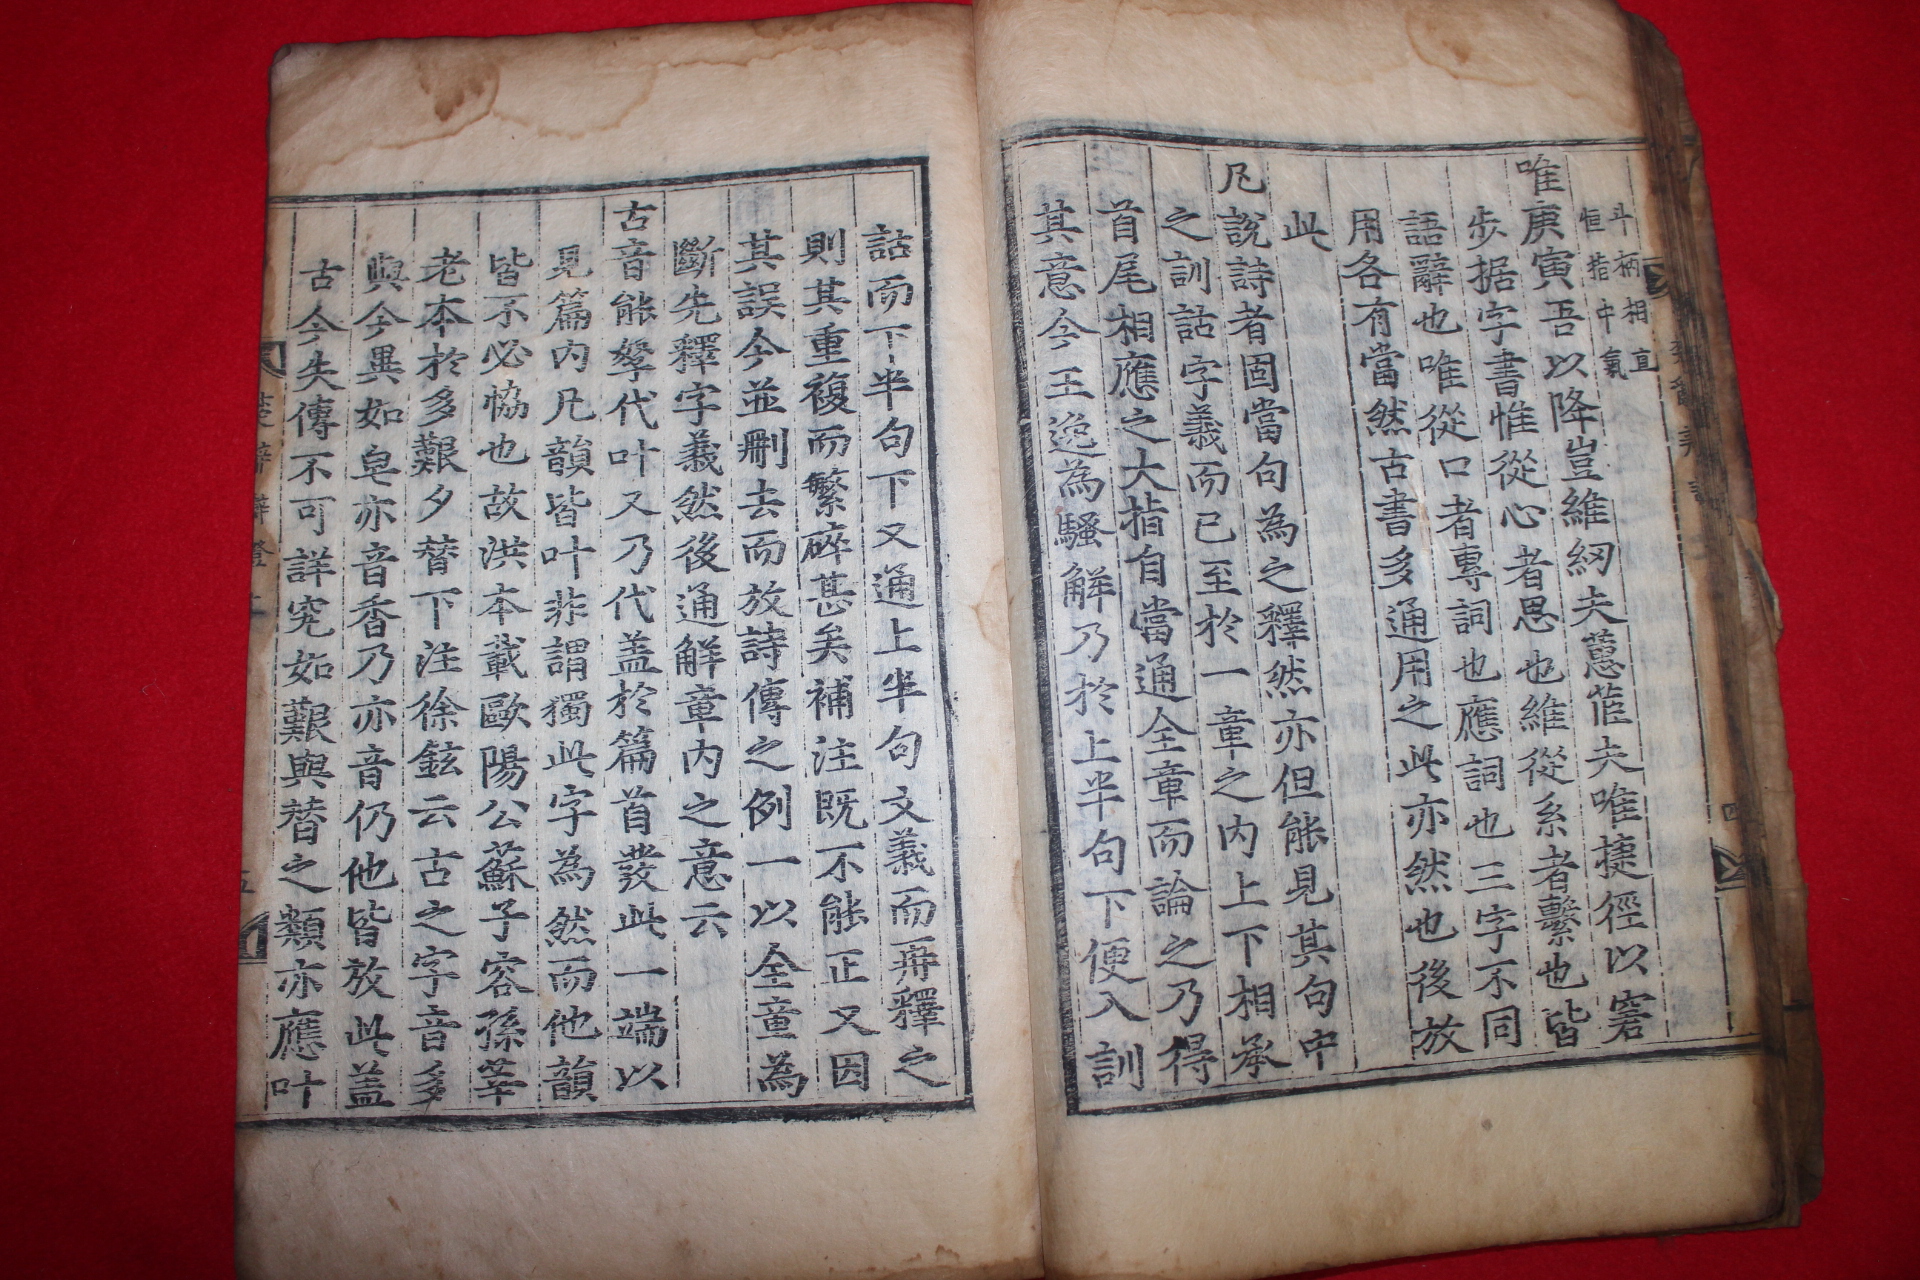 斗柄相直
恒指中氣
唯庚寅吾以降豈維紉夫蕙茝夫唯捷徑以窘
步据字書惟從心者思也維從系者繫也皆
語辭也唯從口者專詞也應詞也三字不同
用各有當然古書多通用之此亦然也後放
此
凡說詩者固當句為之釋然亦但能見其句中
之訓詁字義而已至於一章之內上下相承
首尾相應之大指自當通全章而論之乃得
其意今王逸為騷解乃於上半句下便入訓
詁而下半句下又通上半句文義而再釋之
則其重複而繁碎甚矣補注既不能正又因
其誤今並刪去而放詩傳之例一以全章為
斷先釋字義然後通解章內之意云
古音能孥代叶又乃代盖於篇首發此一端以
見篇內凡韻皆叶非謂獨此字為然而他韻
皆不必恊也故洪本載歐陽公蘇子容孫莘
老本於多艱夕替下注徐鉉云古之字音多
與今異如皂亦音香乃亦音仍他皆放此盖
古今失傳不可詳究如艱與替之類亦應叶